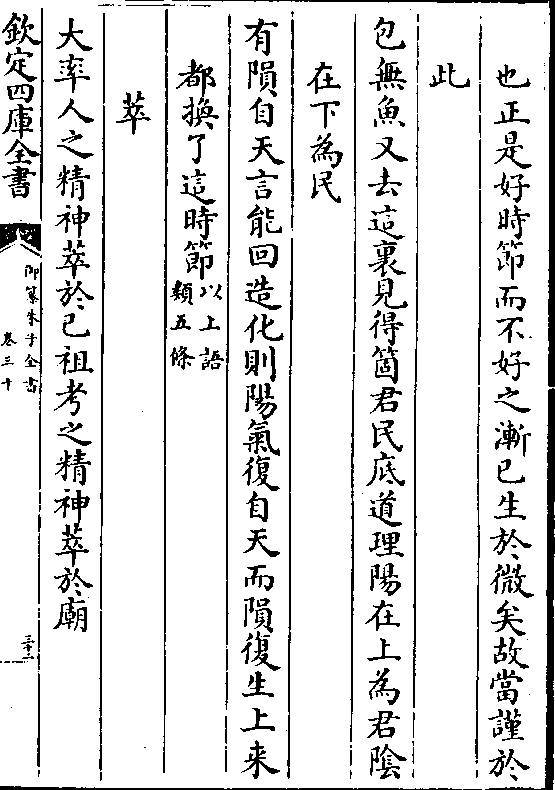 也正是好時節而不好之漸已生於微矣故當謹於
此
包無魚又去這裏見得箇君民底道理陽在上為君陰
在下為民
有隕自天言能回造化則陽氣復自天而隕復生上来
都換了這時節以上語
類五條
萃
大率人之精神萃於已祖考之精神萃於廟
欽定四庫全書
御纂朱子全書
卷三十
三十二